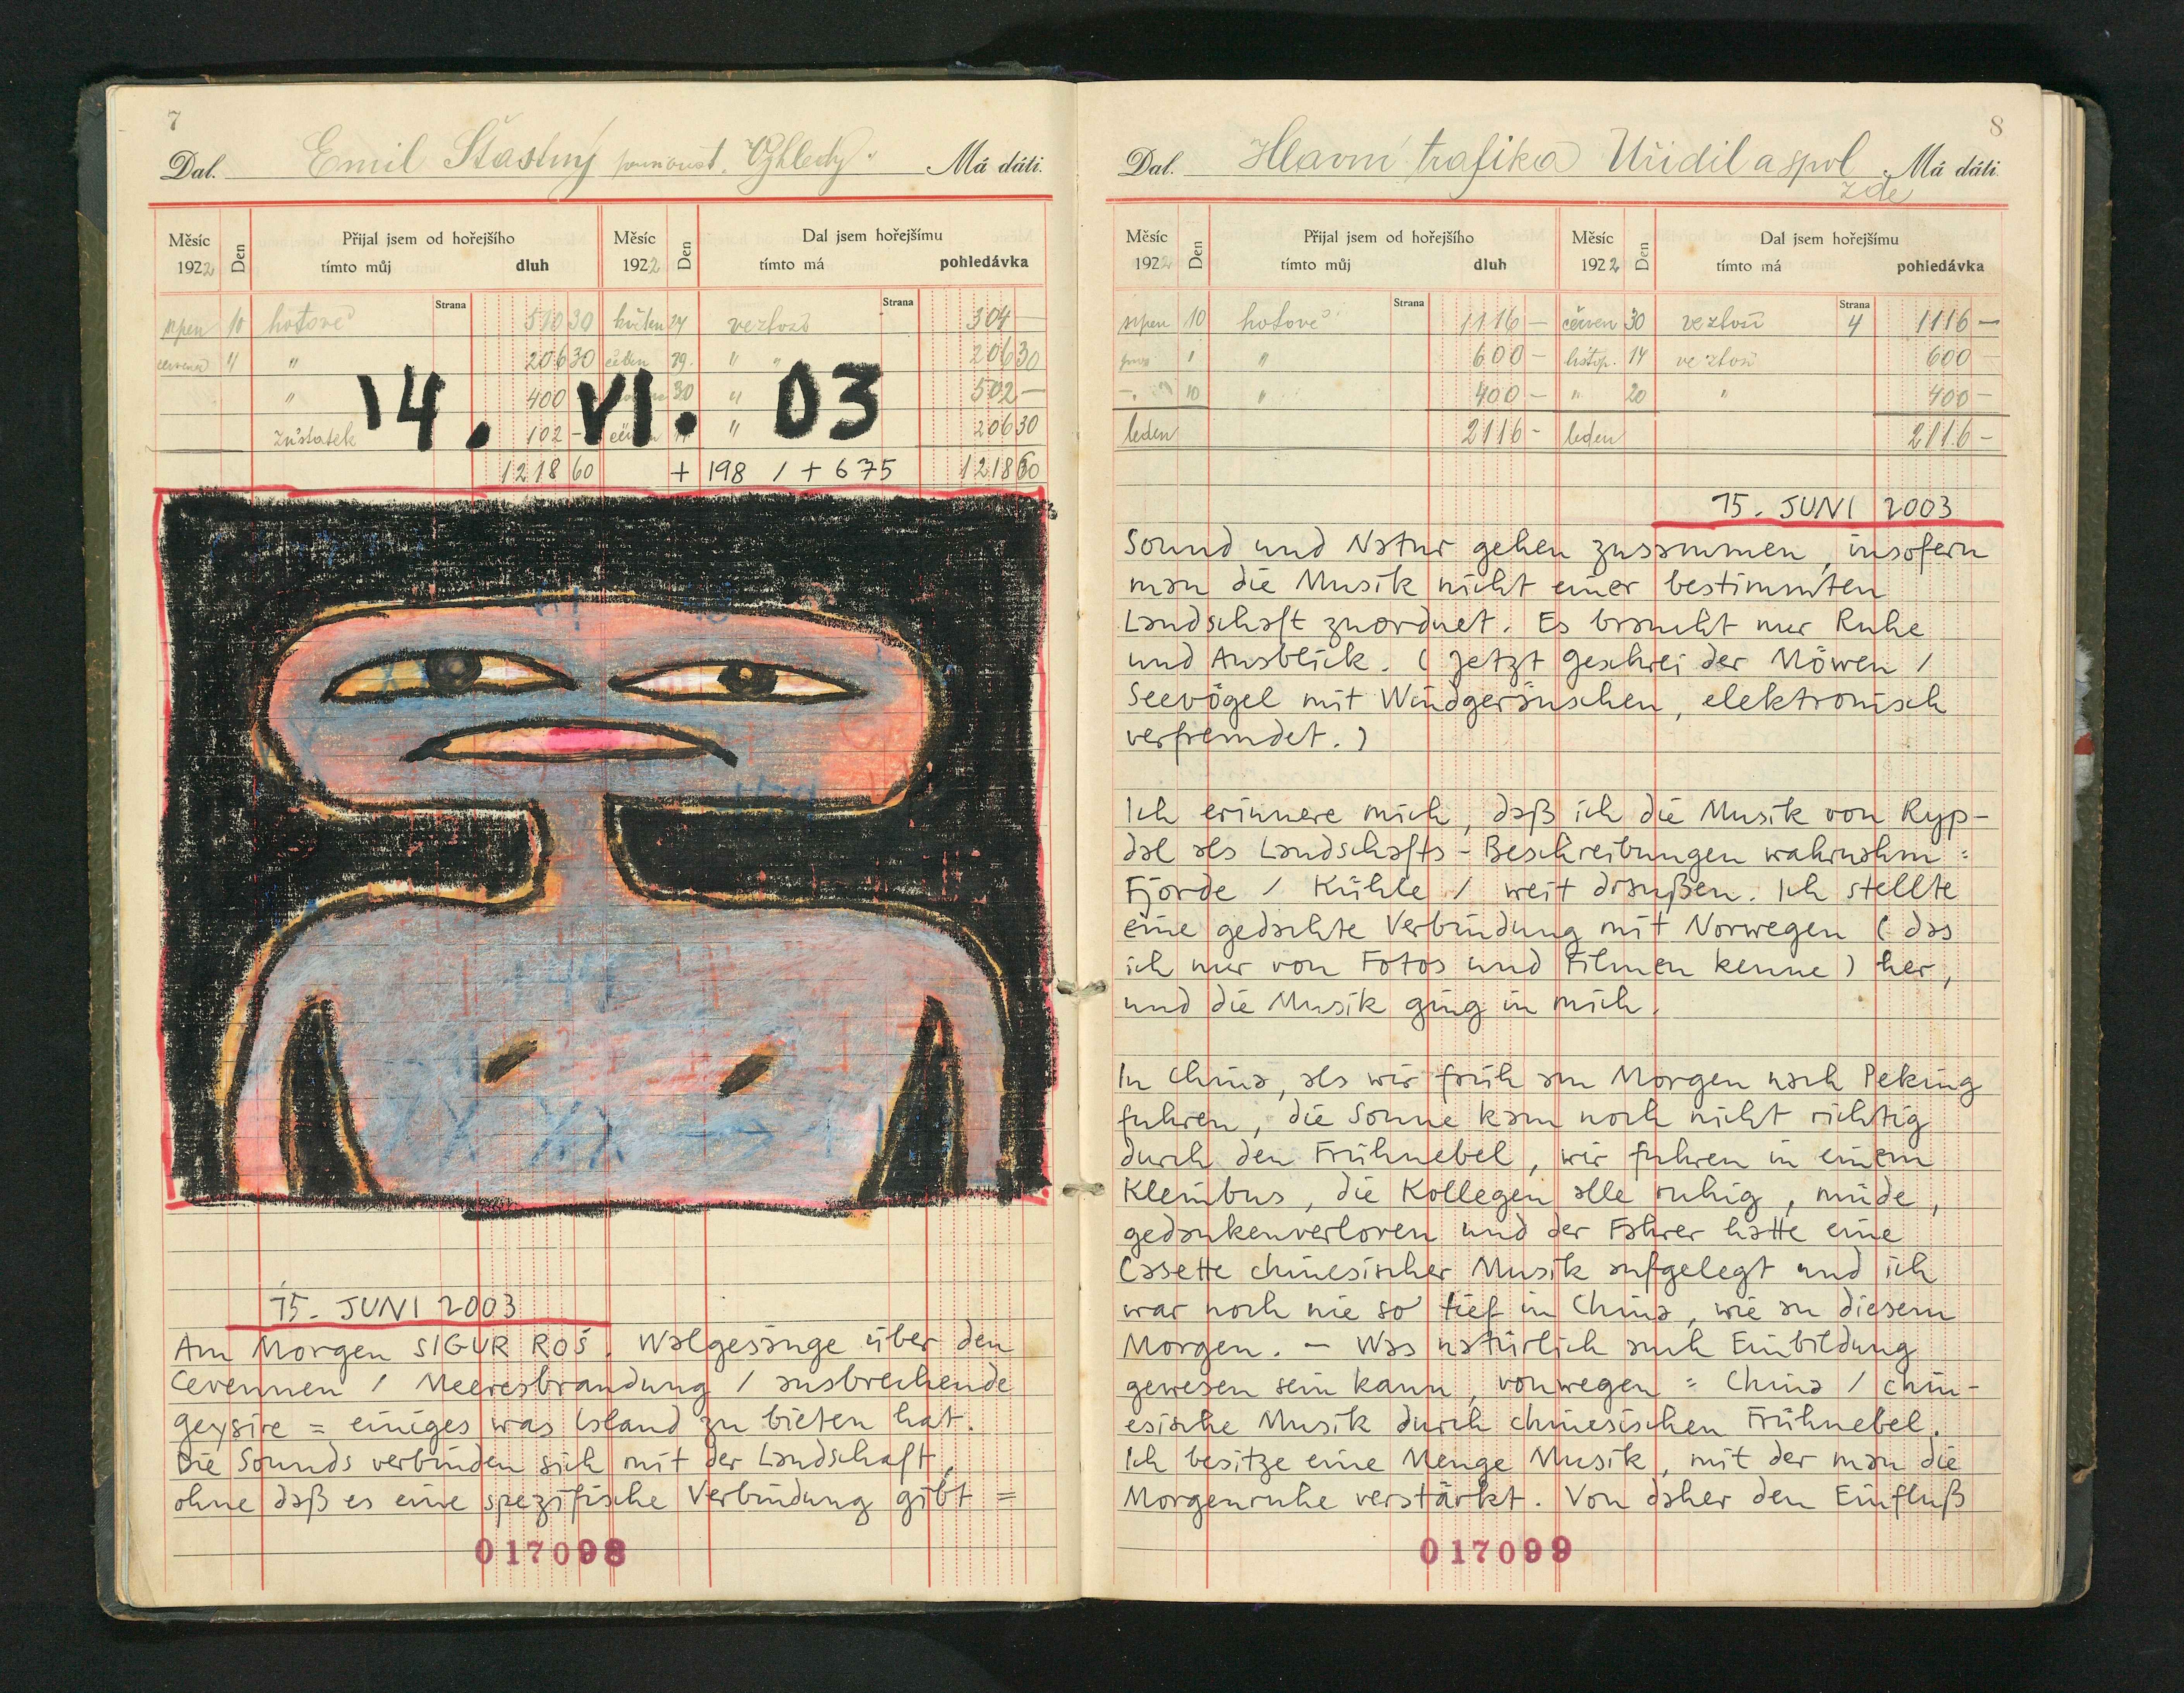 7
Dal. Emil Šťastný Výhledy" Má dáti.
Měsíc 1922 Den Přijal jsem od hořejšího tímto můj dluh Měsíc 1922 Den Dal jsem hořejšímu tímto má pohledávka
Strana Strana
srpen 10 hotově 510 30 květen 24 ve zboží 304 —
" " 206 30 29. " " 206 30
" 400 30 " 502 —
zůstatek 102 — " 206 30
14. VI. 03
1218 60 + 198 / + 675 1218 60
15. JUNI 2003
Am Morgen SIGUR ROS. Walgesänge über den
Cevennen / Meeresbrandung / ausbrechende
Geysire = einiges was Island zu bieten hat.
Die Sounds verbinden sich mit der Landschaft,
ohne daß es eine spezifische Verbindung gibt =
017098
8
Dal. Hlavní trafika Uřidil a spol Má dáti.
zde
Měsíc 1922 Den Přijal jsem od hořejšího tímto můj dluh Měsíc 1922 Den Dal jsem hořejšímu tímto má pohledávka
Strana Strana
srpen 10 hotově 1116 — červen 30 ve zboží 4 1116 —
" " 600 — listop. 14 ve zboží 600 —
10 " 400 — " 20 " 400 —
leden 2116 — leden 2116 —
15. JUNI 2003
Sound und Natur gehen zusammen, insofern
man die Musik nicht einer bestimmten
Landschaft zuordnet. Es braucht nur Ruhe
und Ausblick. (Jetzt Geschrei der Möwen /
Seevögel mit Windgeräuschen, elektronisch
verfremdet.)
Ich erinnere mich, daß ich die Musik von Ryp-
dal als Landschafts-Beschreibungen wahrnahm =
Fjorde / Kühle / weit draußen. Ich stellte
eine gedachte Verbindung mit Norwegen (das
ich nur von Fotos und Filmen kenne) her,
und die Musik ging in mich.
In China, als wir früh am Morgen nach Peking
fuhren, die Sonne kam noch nicht richtig
durch den Frühnebel, wir fuhren in einem
Kleinbus, die Kollegen alle ruhig, müde,
gedankenverloren und der Fahrer hatte eine
Casette chinesischer Musik aufgelegt und ich
war noch nie so tief in China, wie an diesem
Morgen. — Was natürlich auch Einbildung
gewesen sein kann, vonwegen = China / chin-
esische Musik durch chinesischen Frühnebel.
Ich besitze eine Menge Musik, mit der man die
Morgenruhe verstärkt. Von daher den Einfluß
017099